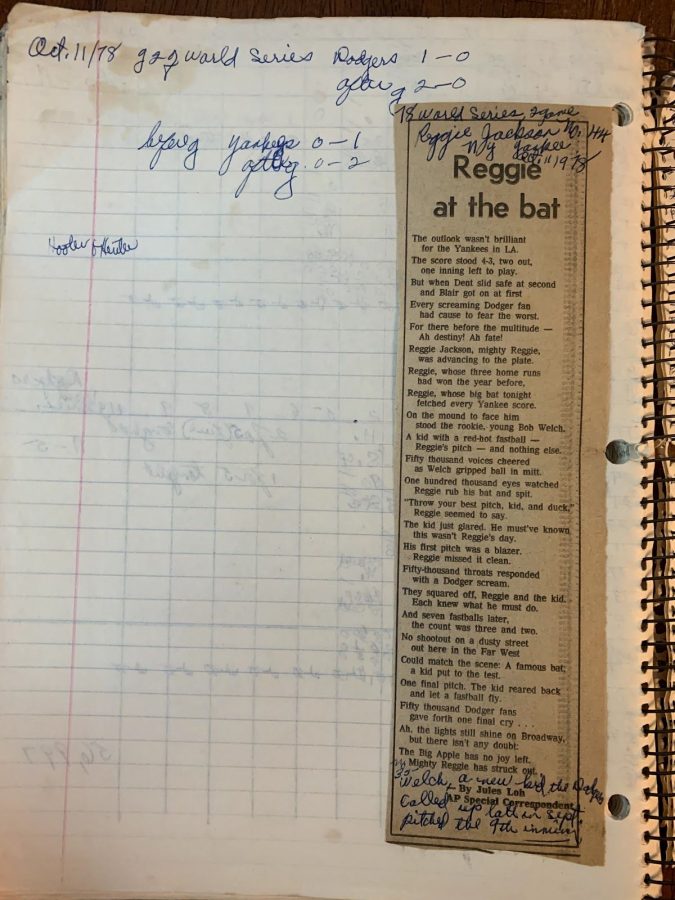 Oct. 11/78 g 2 of World Series Dodgers 1-0
after g 2-0
before g Yankees 0-1
after g. 0-2
Hooton & Hunter
78 World Series, 2 game
Reggie Jackson No. 44
N.Y. Yankee
Oct. 11 1978
Reggie
at the bat
The outlook wasn't brilliant
for the Yankees in LA.
The score stood 4-3, two out,
one inning left to play.
But when Dent slid safe at second
and Blair got on at first
Every screaming Dodger fan
had cause to fear the worst.
For there before the multitude —
Ah destiny! Ah fate!
Reggie Jackson, mighty Reggie,
was advancing to the plate.
Reggie, whose three home runs
had won the year before,
Reggie, whose big bat tonight
fetched every Yankee score.
On the mound to face him
stood the rookie, young Bob Welch.
A kid with a red-hot fastball —
Reggie's pitch — and nothing else.
Fifty thousand voices cheered
as Welch gripped ball in mitt.
One hundred thousand eyes watched
Reggie rub his bat and spit.
"Throw your best pitch, kid, and duck,"
Reggie seemed to say.
The kid just glared. He must've known
this wasn't Reggie's day.
His first pitch was a blazer.
Reggie missed it clean.
Fifty-thousand throats responded
with a Dodger scream.
They squared off, Reggie and the kid.
Each knew what he must do.
And seven fastballs later,
the count was three and two.
No shootout on a dusty street
out here in the Far West
Could match the scene: A famous bat,
a kid put to the test.
One final pitch. The kid reared back
and let a fastball fly.
Fifty thousand Dodger fans
gave forth one final cry . . .
Ah, the lights still shine on Broadway,
but there isn't any doubt:
The Big Apple has no joy left.
Mighty Reggie has struck out.
Welch, a new kid the Dodgers
By Jules Loh
called up late in Sept.
AP Special Correspondent
pitched the 9th inning